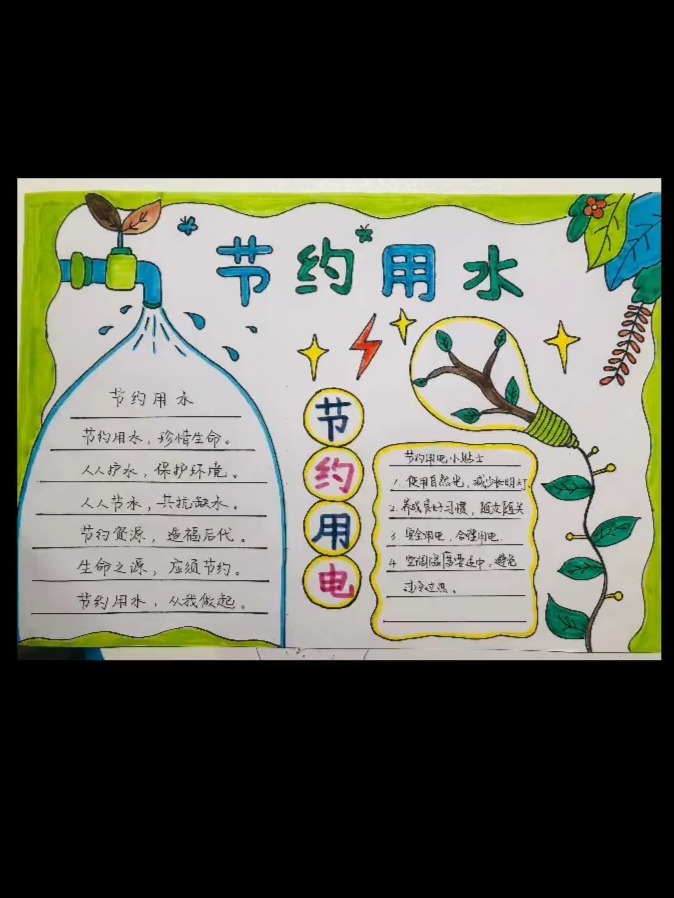 节约用水
节约用水
节约用水，珍惜生命。
人人护水，保护环境。
人人节水，共抗缺水。
节约资源，造福后代。
生命之源，应须节约。
节约用水，从我做起。
节
约
用
电
节约用电小贴士
1. 使用自然光，减少长明灯
2. 养成良好习惯，随走随关
3. 安全用电，合理用电
4. 空调温度要适中，避免
过冷过热。